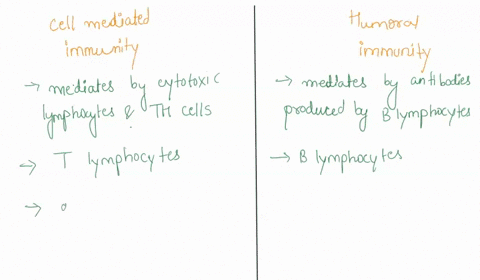 Cell mediated
immunity
→ mediates by cytotoxic
lymphocytes & TH cells
→ T lymphocytes
→
Humoral
immunity
→ mediates by antibodies
produced by B lymphocytes
→ B lymphocytes